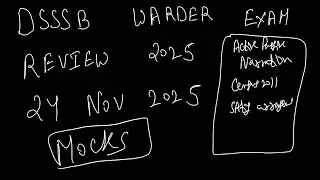 DSSSB WARDER EXAM
REVIEW 2025
24 NOV 2025
MOCKS
Active Passive
Narration
Census 2011